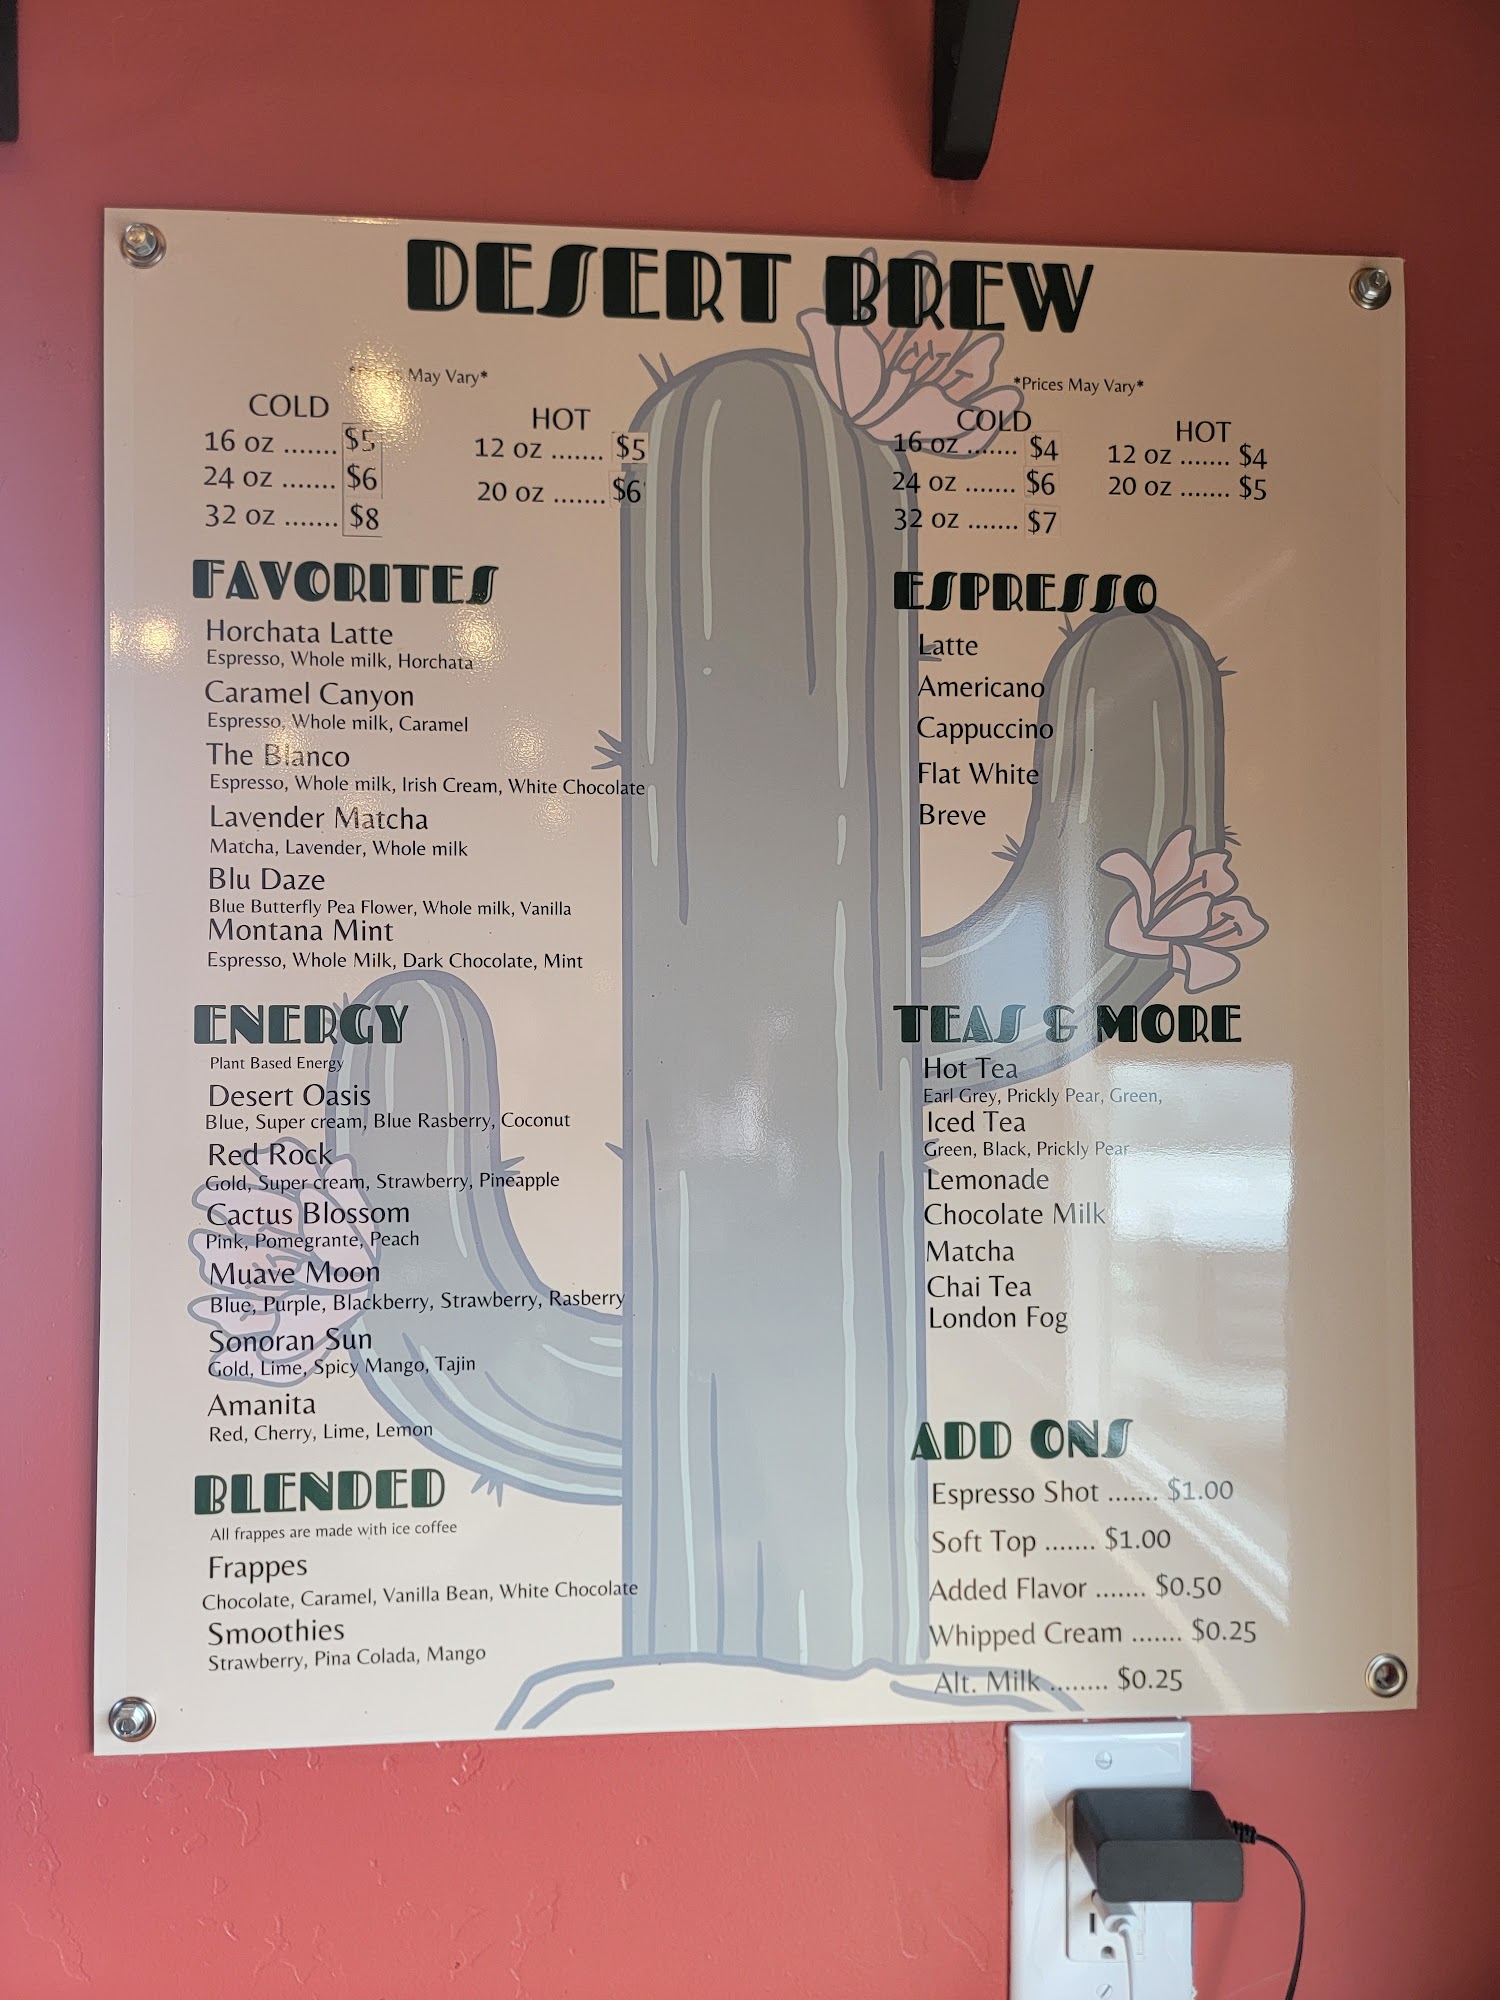 DESERT BREW
*Prices May Vary*
COLD
16 oz ....... $5
24 oz ....... $6
32 oz ....... $8
HOT
12 oz ....... $5
20 oz ....... $6
FAVORITES
Horchata Latte
Espresso, Whole milk, Horchata
Caramel Canyon
Espresso, Whole milk, Caramel
The Blanco
Espresso, Whole milk, Irish Cream, White Chocolate
Lavender Matcha
Matcha, Lavender, Whole milk
Blu Daze
Blue Butterfly Pea Flower, Whole milk, Vanilla
Montana Mint
Espresso, Whole Milk, Dark Chocolate, Mint
ENERGY
Plant Based Energy
Desert Oasis
Blue, Super cream, Blue Rasberry, Coconut
Red Rock
Gold, Super cream, Strawberry, Pineapple
Cactus Blossom
Pink, Pomegrante, Peach
Muave Moon
Blue, Purple, Blackberry, Strawberry, Rasberry
Sonoran Sun
Gold, Lime, Spicy Mango, Tajin
Amanita
Red, Cherry, Lime, Lemon
BLENDED
All frappes are made with ice coffee
Frappes
Chocolate, Caramel, Vanilla Bean, White Chocolate
Smoothies
Strawberry, Pina Colada, Mango
*Prices May Vary*
COLD
16 oz ....... $4
24 oz ....... $6
32 oz ....... $7
HOT
12 oz ....... $4
20 oz ....... $5
ESPRESSO
Latte
Americano
Cappuccino
Flat White
Breve
TEAS & MORE
Hot Tea
Earl Grey, Prickly Pear, Green,
Iced Tea
Green, Black, Prickly Pear
Lemonade
Chocolate Milk
Matcha
Chai Tea
London Fog
ADD ONS
Espresso Shot ....... $1.00
Soft Top ....... $1.00
Added Flavor ....... $0.50
Whipped Cream ....... $0.25
Alt. Milk ........ $0.25